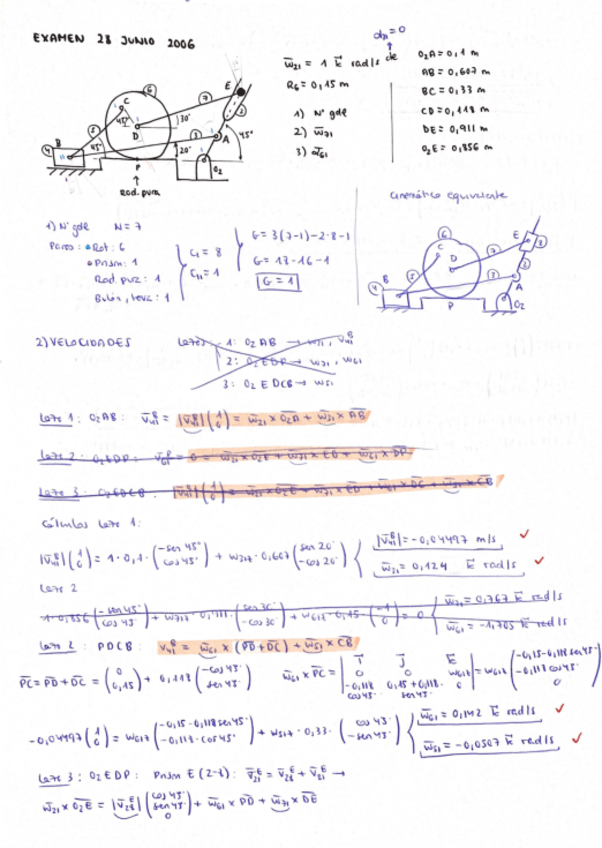 EXAMEN 28 JUNIO 2006
α₂₁ = 0
w̄₂₁ = 1 k̄ rad/s de
R₆ = 0,15 m
1) Nº gdl
2) w̄₇₁
3) ᾱ₆₁
O₂A = 0,1 m
AB = 0,607 m
BC = 0,33 m
CD = 0,118 m
DE = 0,911 m
O₂E = 0,856 m
6
C
7
E
5
45º
D
30º
2
4
B
45º
3
A
45º
20º
P
O₂
Rod. pura
Cinemático equivalente
1) Nº gdl N = 7
Pares: Rot: 6
Prism: 1
Rod. pura: 1
C₁ = 8
C₁₁ = 1
G = 3(7-1)-2·8-1
G = 18-16-1
G = 1
6
C
D
7
E
8
5
2
4
B
3
A
P
O₂
2) VELOCIDADES
1: O₂AB → w₃₁, v₄₁ᴮ
2: O₂EDP → w₇₁, w₆₁
3: O₂EDCB → w₅₁
Lazo 1: O₂AB: v̄₄₁ᴮ = |v̄₄₁ᴮ| (1 0) = w̄₂₁ x O₂A + w̄₃₁ x AB
Lazo 2: O₂EDP: v̄₆₁ᴾ = 0 = w̄₂₁ x O₂E + w̄₇₁ x ED + w̄₆₁ x DP
Lazo 3: O₂EDCB: |v̄₄₁ᴮ| (1 0) = w̄₂₁ x O₂E + w̄₇₁ x ED + w̄₆₁ x DC + w̄₅₁ x CB
Cálculos Lazo 1:
|v̄₄₁ᴮ| (1 0) = 1·0,1·(-sen 45º cos 45º) + w₃₁z·0,607 (sen 20º -cos 20º) { |v̄₄₁ᴮ| = -0,04497 m/s ✓
w̄₃₁ = 0,124 k̄ rad/s ✓
Lazo 2
1·0,856 (-sen 45º cos 45º) + w₇₁z·0,911·(sen 30º -cos 30º) + w₆₁z·0,15·(-1 0) = 0 { w̄₇₁ = 0,767 k̄ rad/s
w̄₆₁ = -1,705 k̄ rad/s
Lazo 2: PDCB: v̄₄₁ᴮ = w̄₆₁ x (PD+DC) + w̄₅₁ x CB
PC = PD + DC = (0 0,15) + 0,118 (-cos 45º sen 45º) w̄₆₁ x PC = | ī j̄ k̄ 0 0 w₆₁z -0,118 cos 45º 0,15+0,118·sen 45º 0 | = w₆₁z (-0,15-0,118 sen 45º -0,118 cos 45º 0)
-0,04497 (1 0) = w₆₁z (-0,15-0,118 sen 45º -0,118·cos 45º) + w₅₁z·0,33·(cos 45º -sen 45º) { w̄₆₁ = 0,142 k̄ rad/s ✓
w̄₅₁ = -0,0507 k̄ rad/s ✓
Lazo 3: O₂EDP: Prism E (2-8): v̄₂₁ᴱ = v̄₂₈ᴱ + v̄₈₁ᴱ →
w̄₂₁ x O₂E = |v̄₂₈ᴱ| (cos 45º sen 45º 0) + w̄₆₁ x PD + w̄₇₁ x DE